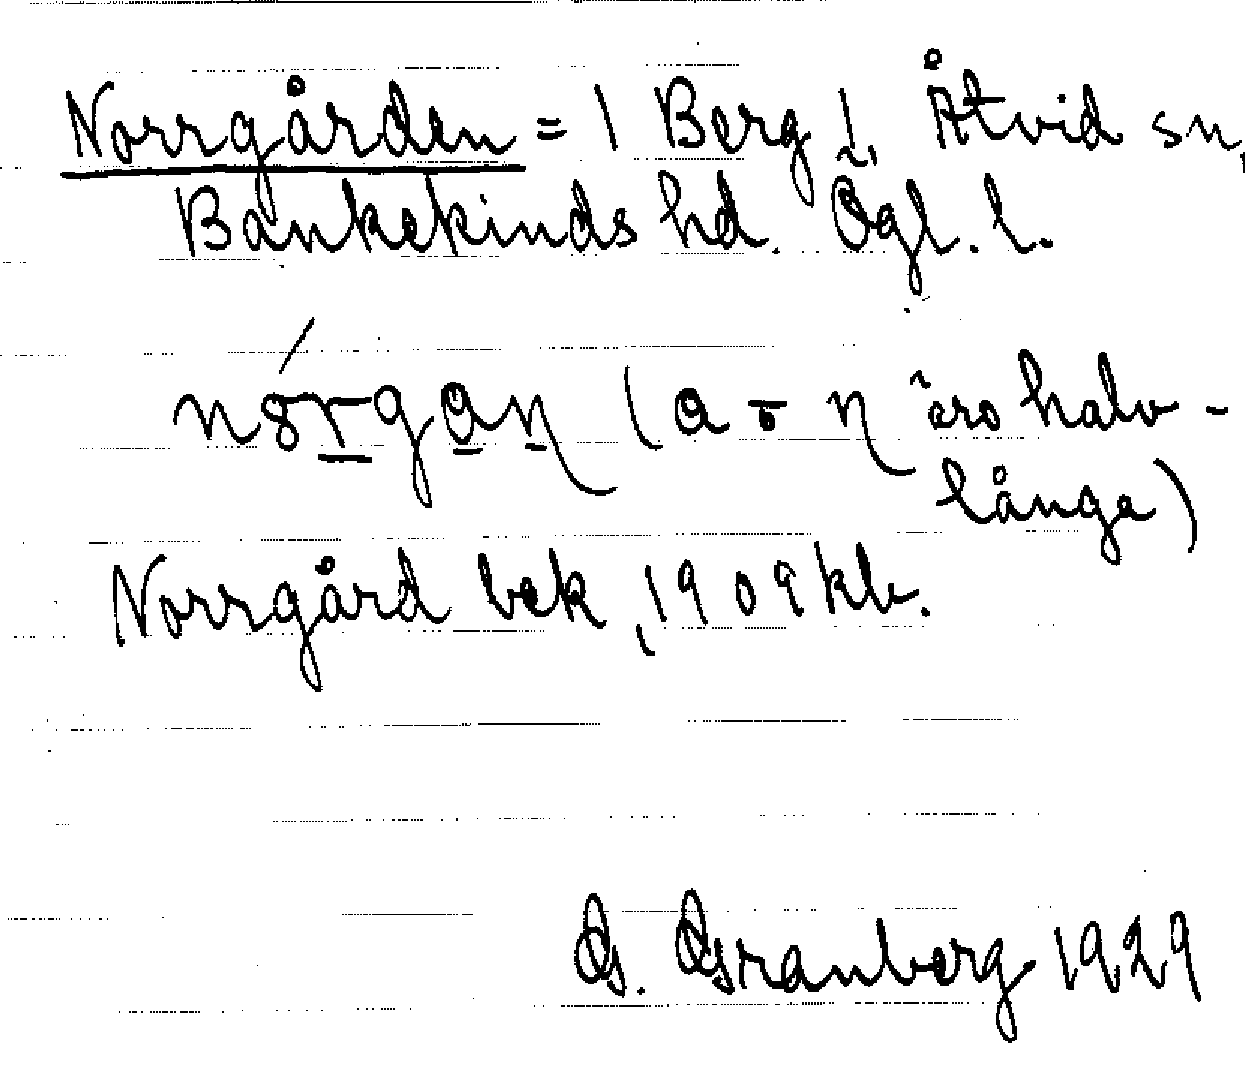 Norrgården = 1 Berg 1, Åtvid sn,
Bankekinds hd. Ögl. l.
nórgaņ (a o ņ äro halv-
långa)
Norrgård bek, 1909 kb.
G. Granberg 1929